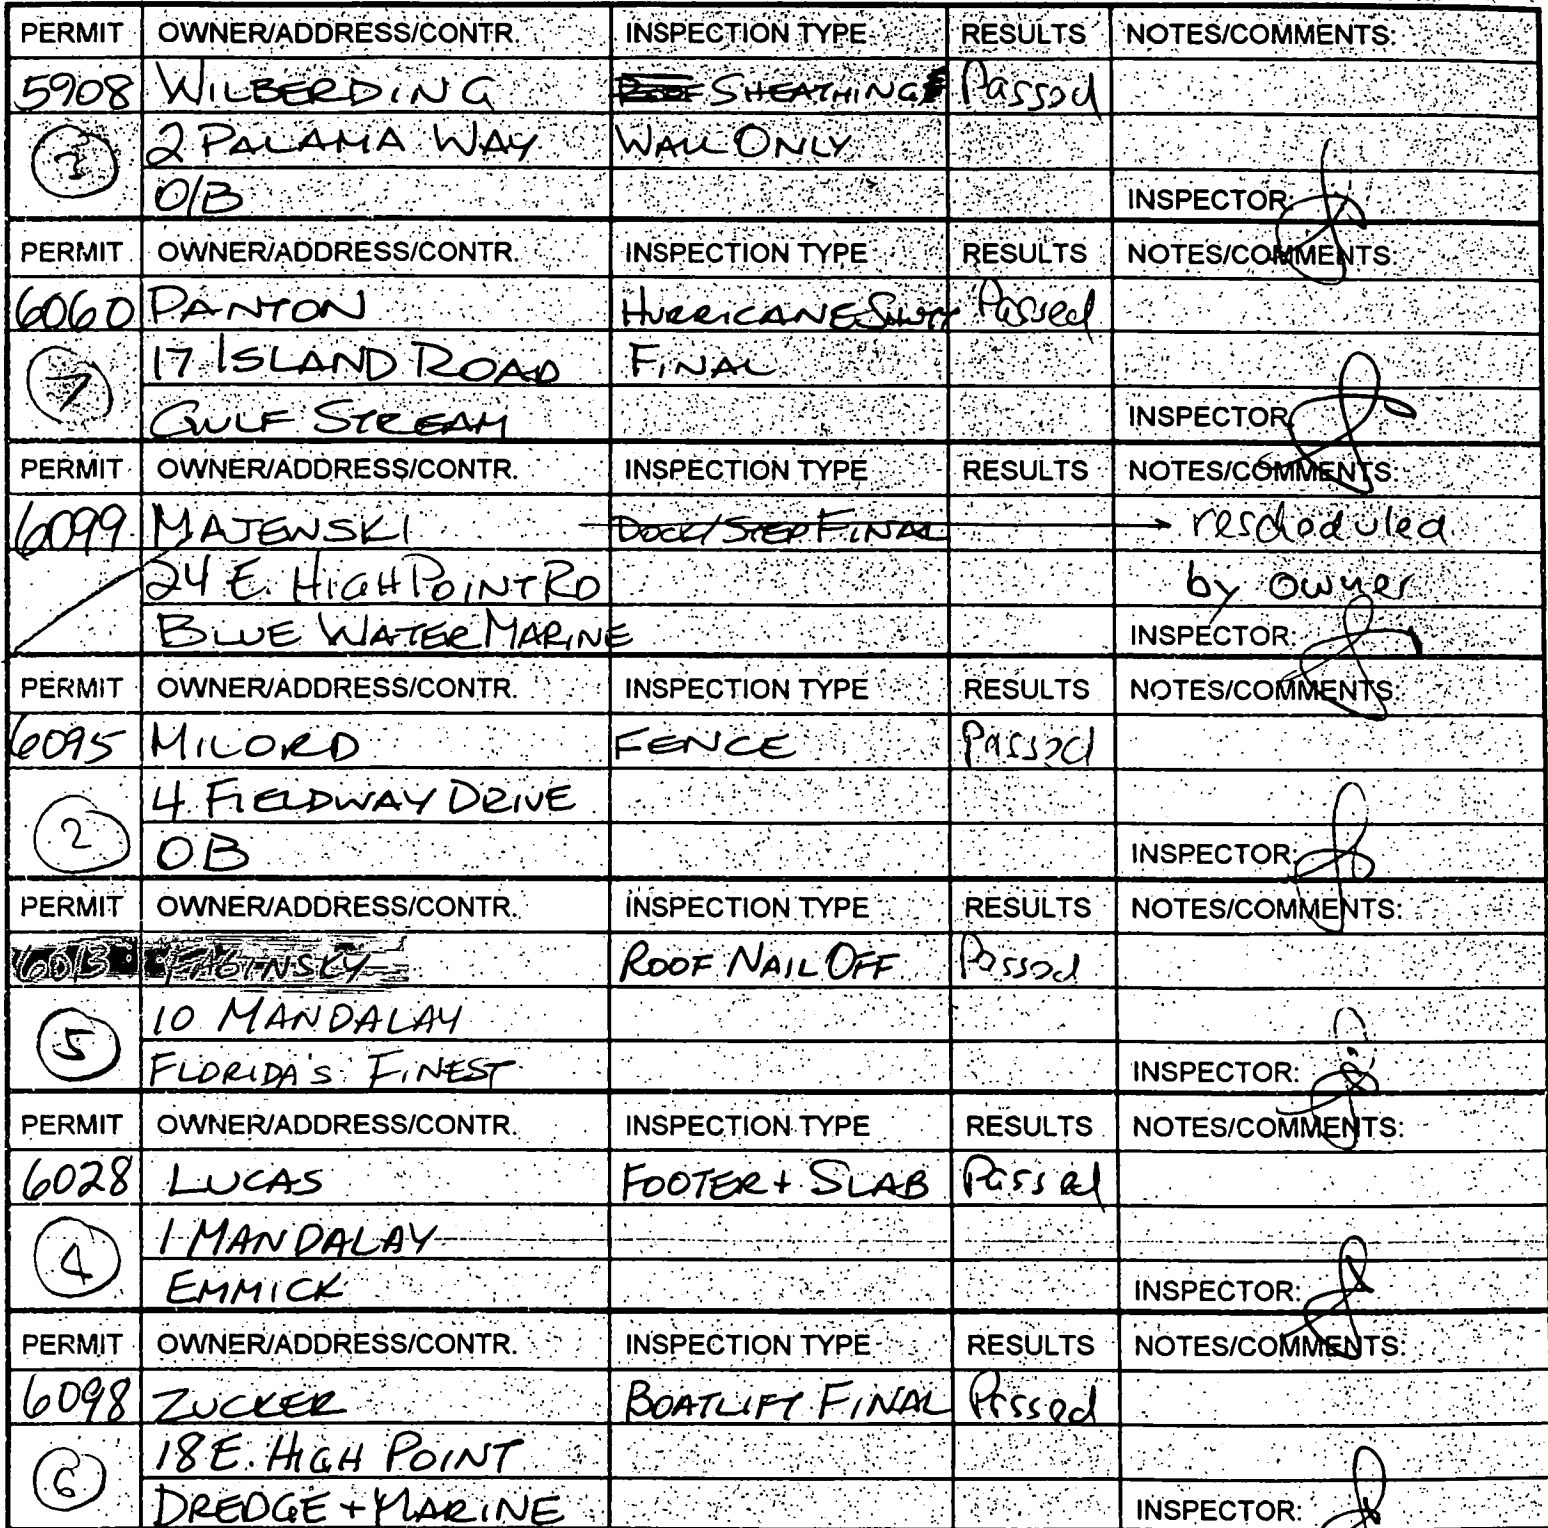 PERMIT OWNER/ADDRESS/CONTR. INSPECTION TYPE RESULTS NOTES/COMMENTS:
5908 WILBERDING SHEATHING Passed
2 PALAMA WAY WALL ONLY
O/B INSPECTOR:
PERMIT OWNER/ADDRESS/CONTR. INSPECTION TYPE RESULTS NOTES/COMMENTS:
6060 PANTON HURRICANE SHUTT Passed
7 17 ISLAND ROAD FINAL
GULF STREAM INSPECTOR:
PERMIT OWNER/ADDRESS/CONTR. INSPECTION TYPE RESULTS NOTES/COMMENTS:
6099 MAJEWSKI DOCK/STEP FINAL rescheduled
24 E. HIGH POINT RD by owner
BLUE WATER MARINE INSPECTOR:
PERMIT OWNER/ADDRESS/CONTR. INSPECTION TYPE RESULTS NOTES/COMMENTS:
6095 MILORD FENCE Passed
2 4 FIELDWAY DRIVE
OB INSPECTOR:
PERMIT OWNER/ADDRESS/CONTR. INSPECTION TYPE RESULTS NOTES/COMMENTS:
ROOF NAIL OFF Passed
5 10 MANDALAY
FLORIDA'S FINEST INSPECTOR:
PERMIT OWNER/ADDRESS/CONTR. INSPECTION TYPE RESULTS NOTES/COMMENTS:
6028 LUCAS FOOTER + SLAB Passed
4 1 MANDALAY
EMMICK INSPECTOR:
PERMIT OWNER/ADDRESS/CONTR. INSPECTION TYPE RESULTS NOTES/COMMENTS:
6098 ZUCKER BOATLIFT FINAL Passed
6 18 E. HIGH POINT
DREDGE + MARINE INSPECTOR: